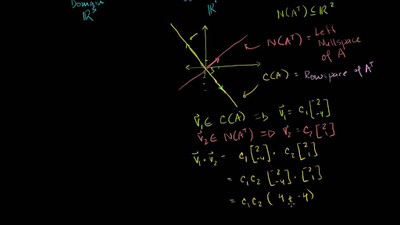 Domain
ℝ³
ℝ²
N(Aᵀ) ⊆ ℝ²
N(Aᵀ) = Left
Nullspace
of A
C(A) = Rowspace of Aᵀ
v⃗₁ ∈ C(A) ⇒ v⃗₁ = c₁ [2 -4]
v⃗₂ ∈ N(Aᵀ) ⇒ v⃗₂ = c₂ [2 1]
v⃗₁ · v⃗₂ = c₁ [2 -4] · c₂ [2 1]
= c₁c₂ [2 -4] · [2 1]
= c₁c₂ (4 + -4)